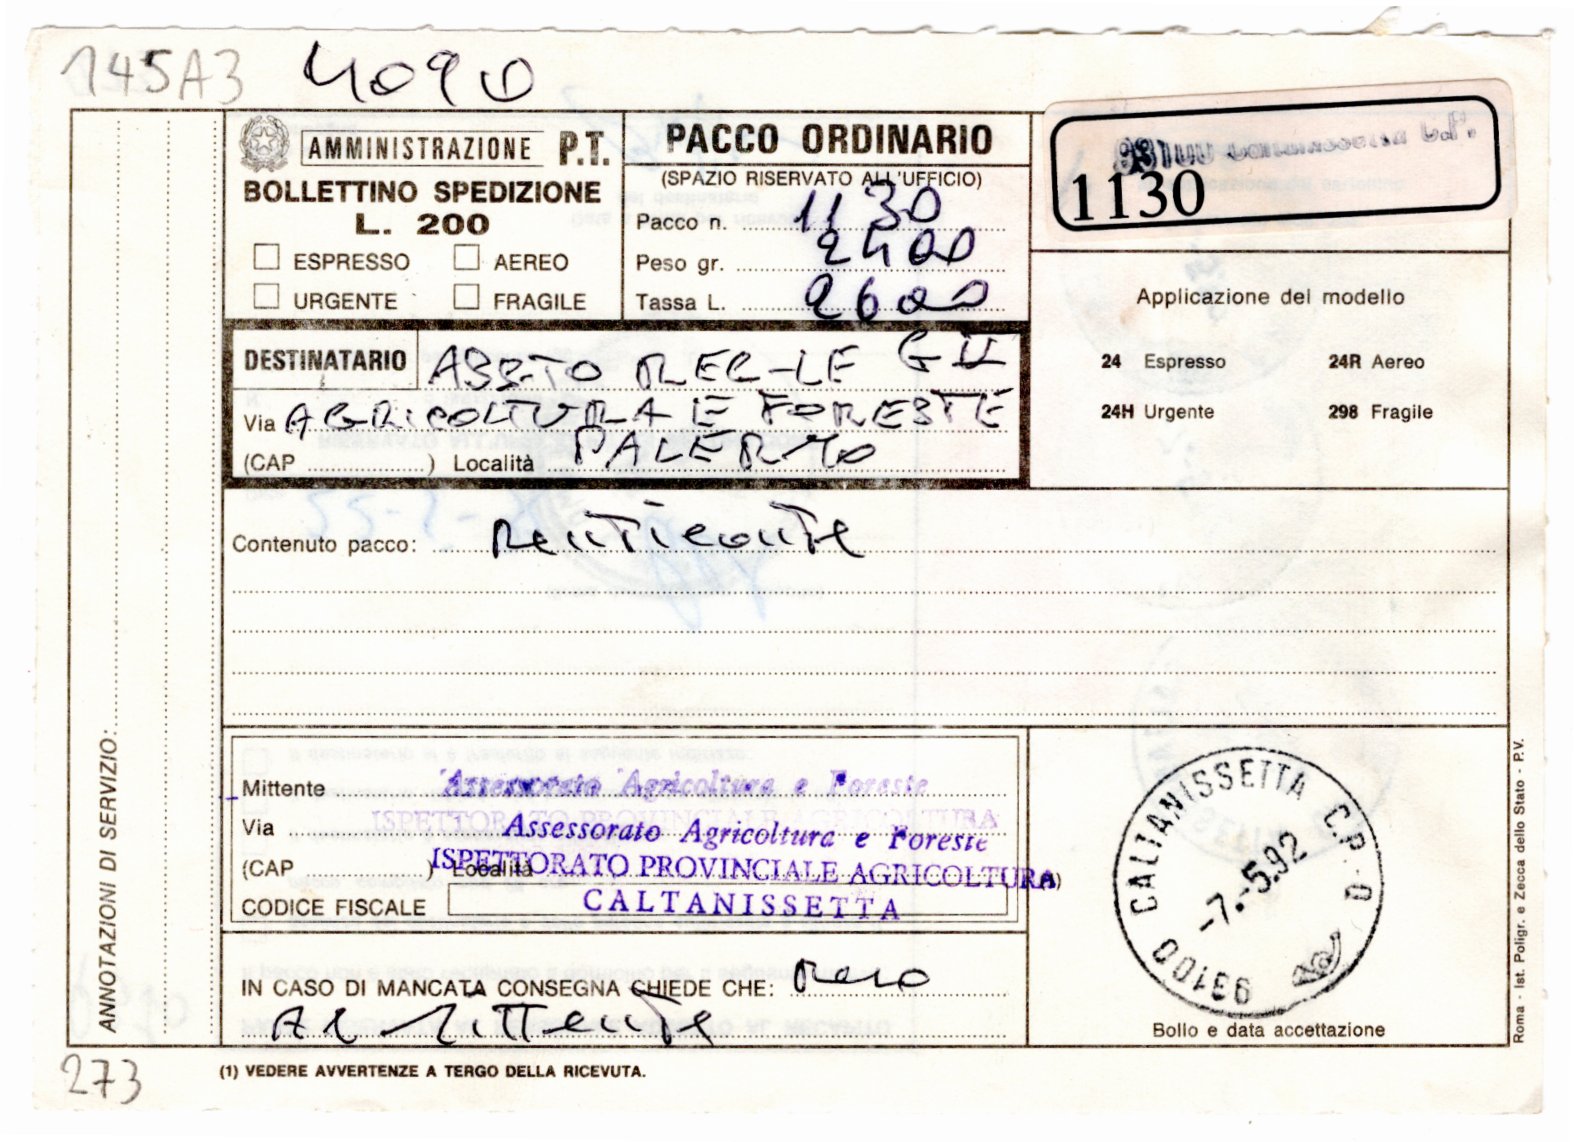 145A3 4090
AMMINISTRAZIONE P.T.
BOLLETTINO SPEDIZIONE
L. 200
ESPRESSO AEREO
URGENTE FRAGILE
PACCO ORDINARIO
(SPAZIO RISERVATO ALL'UFFICIO)
Pacco n. 1130
Peso gr. 2400
Tassa L. 2600
93100 Caltanissetta C.P.
1130
Applicazione del modello
24 Espresso 24R Aereo
24H Urgente 298 Fragile
DESTINATARIO ASS-TO REG-LE G II
Via AGRICOLTURA E FORESTE
(CAP ) Località PALERMO
Contenuto pacco:
ANNOTAZIONI DI SERVIZIO:
Mittente Assessorato Agricoltura e Foreste
ISPETTORATO PROVINCIALE AGRICOLTURA
Via Assessorato Agricoltura e Foreste
(CAP ) Località ISPETTORATO PROVINCIALE AGRICOLTURA
CODICE FISCALE CALTANISSETTA
IN CASO DI MANCATA CONSEGNA CHIEDE CHE: Reso
Al Mittente
93100 CALTANISSETTA C.P. O
-7.-5.92
Bollo e data accettazione
Roma - Ist. Poligr. e Zecca dello Stato - P.V.
273
(1) VEDERE AVVERTENZE A TERGO DELLA RICEVUTA.